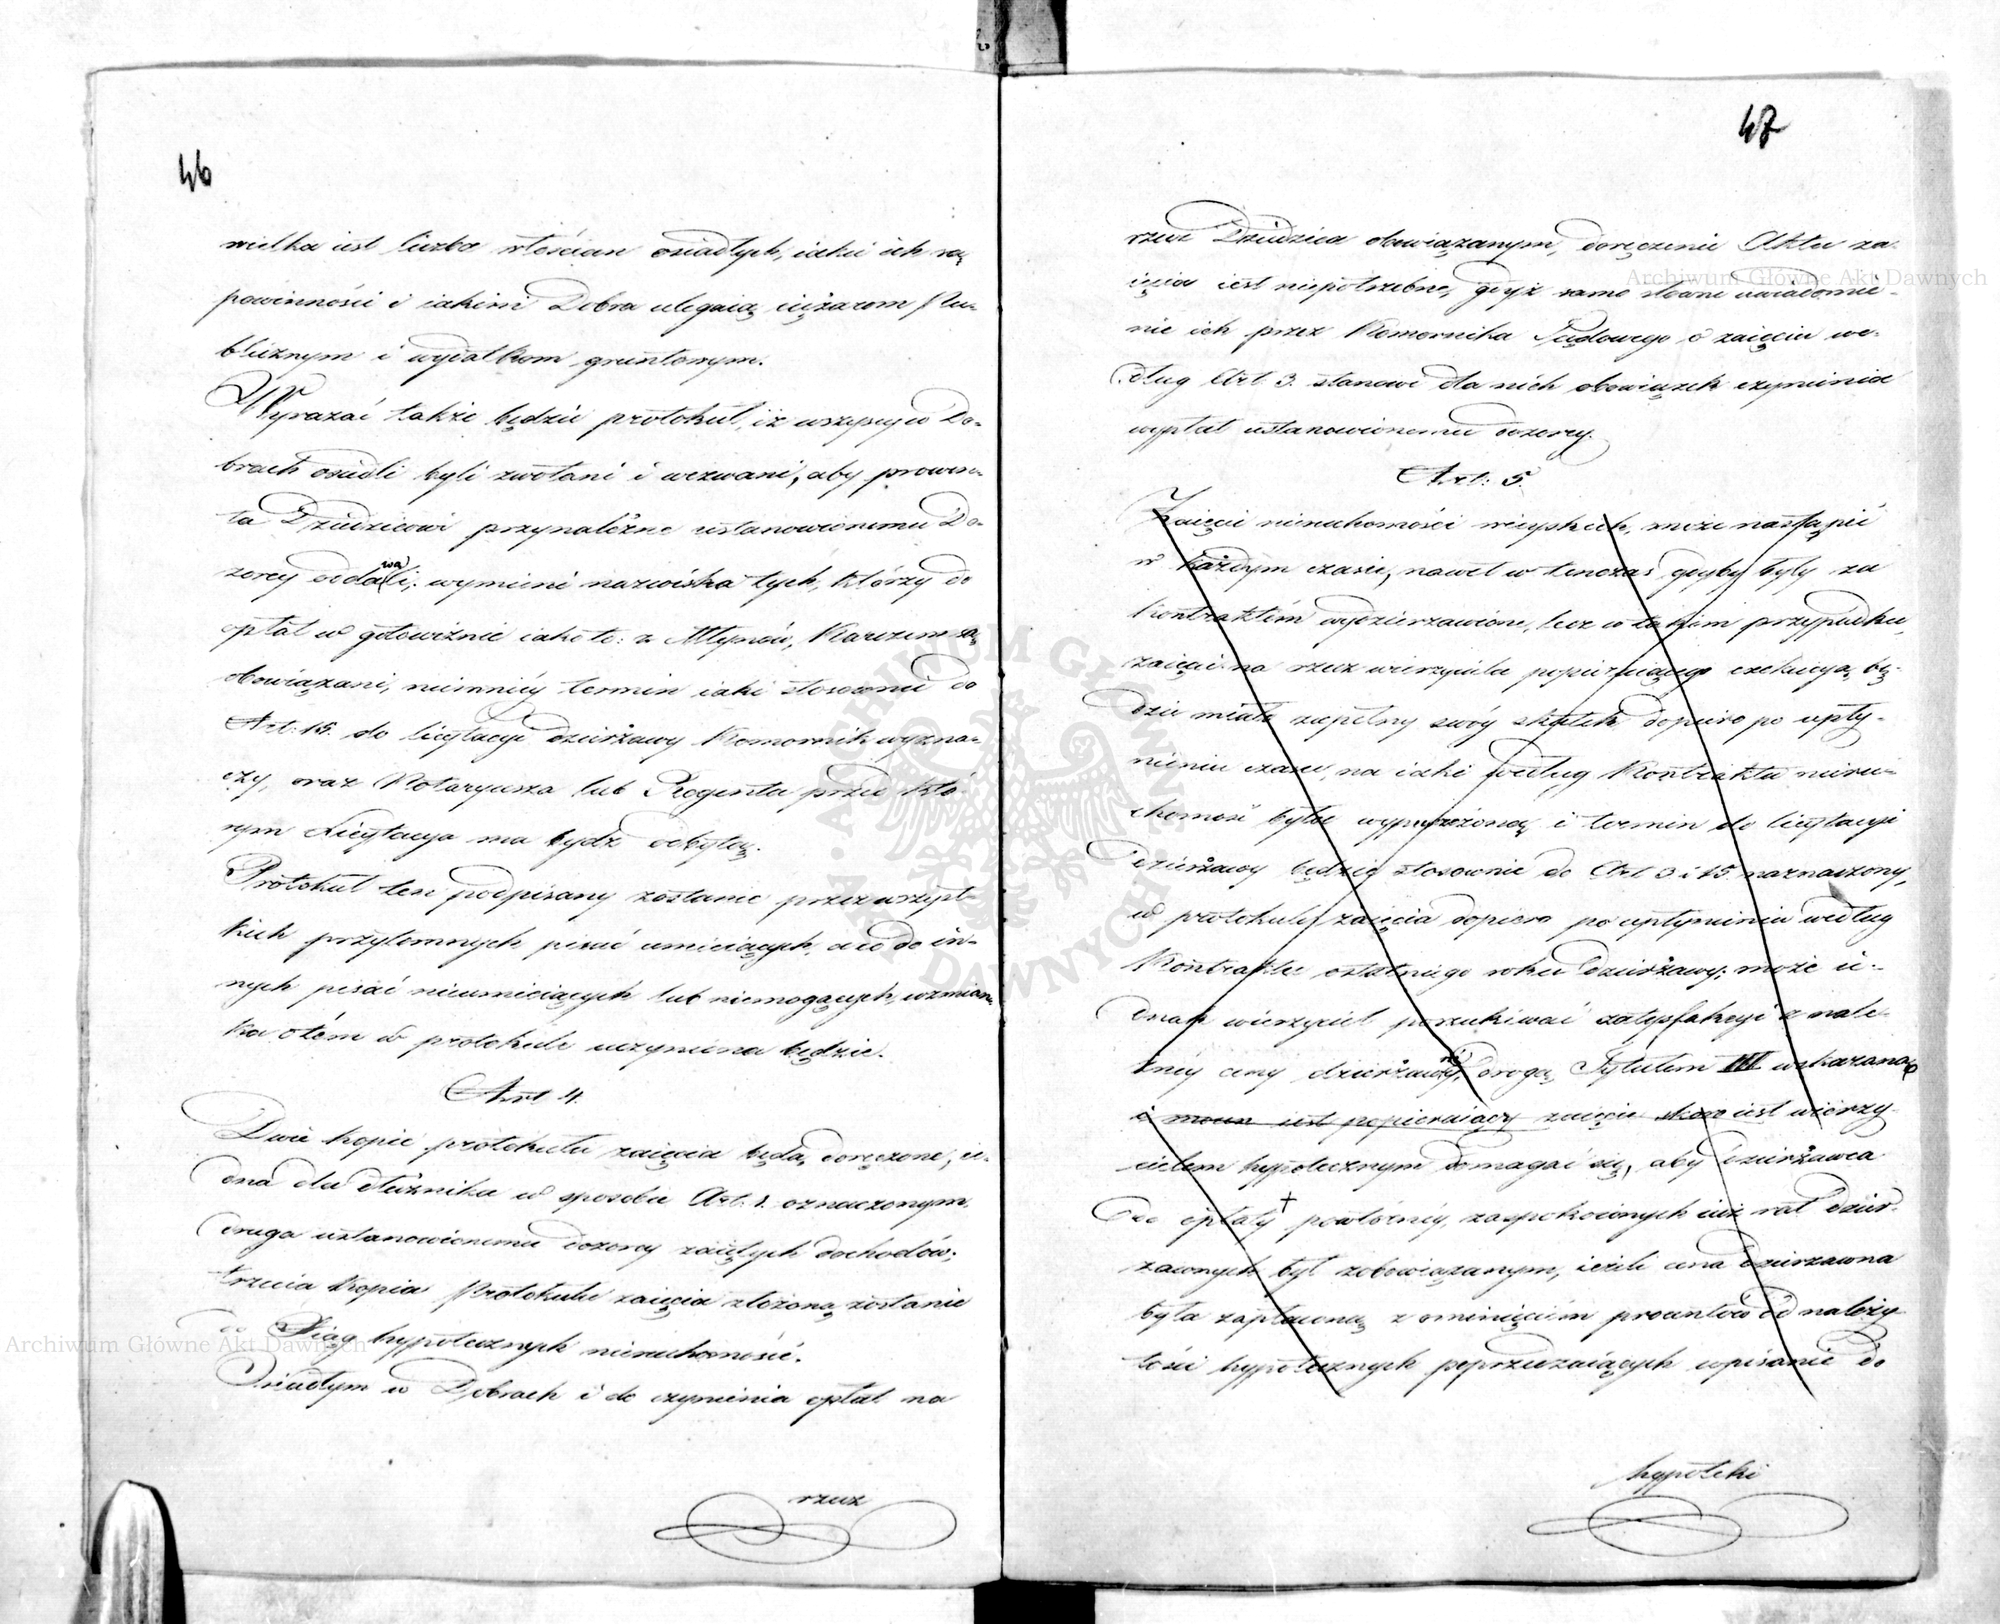 46
wielka iest liczba włościan osiadłych, iakie ich są
powinności i iakim Dobra ulegaią ciężarom Pu-
blicznym i wydatkom gruntowym.
Wyrażać także będzie protokuł, iż wszyscy w Do-
brach osiedli byli zwołani i wezwani, aby prowen-
ta Dziedzicowi przynależne ustanowionemu Do-
zorcy oddawali; wymieni nazwiska tych, którzy do
opłat w gotowiźnie iakoto: z Młynów, Karczem są
obowiązani, niemniéy termin iaki stosownie do
Art: 15. do licytacyi dzierżawy Komornik wyzna-
czy, oraz Notaryusza lub Regenta przed któ-
rym Licytacya ma bydź odbytą.
Protokuł ten podpisany zostanie przez wszyst-
kich przytomnych pisać umieiących, a co do in-
nych pisać nieumieiących lub niemogących, wzmian-
ka o tém w protokule uczyniona będzie.
Art 4.
Dwie kopie protokułu zaięcia będą doręczone, ie-
dna dla dłużnika w sposobie Art: 1. oznaczonym,
druga ustanowionemu dozorcy zaiętych dochodów;
trzecia kopia Protokułu zaięcia złożoną zostanie
do Xiąg hypotecznych nieruchomości.
Osiadłym w Dobrach i do czynienia opłat na
rzecz
47
rzecz Dziedzica obowiązanym, doręczenie Aktu za-
ięcia iest niepotrzebne, gdyż samo słowne uwiadomie-
nie ich przez Komornika Sądowego o zaięciu we-
dług Art. 3. stanowi dla nich obowiązek czynienia
wypłat ustanowionemu dozorcy.
Art: 5.
Zaięcie nieruchomości wieyskich, może nastąpić
w każdym czasie, nawet w tenczas gdyby były za
kontraktém wydzierżawione, lecz w takim przypadku,
zaięcie na rzecz wierzyciela popieraiącego exekucyą bę-
dzie miało zupełny swóy skutek dopiero po upły-
nieniu czasu, na iaki według Kontraktu nieru-
chomość była wypuszczoną i termin do licytacyi
dzierżawy będzie stosownie do Art 3 i 15. naznaczony,
w protokule zaięcia dopiero po upłynieniu według
Kontraktu ostatniego roku dzierżawy; może ie-
dnak wierzyciel poszukiwać satysfakcyi z nale-
żnéy ceny dzierżawnéy drogą Tytułem III wskazaną
i mocen iest popieraiący zaięcie skoro iest wierzy-
cielem hypotecznym domagać się, aby dzierżawca
do opłaty + powtórnéy zaspokoionych iuż rat dzier-
żawnych był zobowiązanym, ieżeli cena dzierżawna
była zapłaconą z ominięciém procentów od należy-
tości hypotecznych poprzedzaiących wpisanie do
hypoteki
Archiwum Główne Akt Dawnych
Archiwum Główne Akt Dawnych
ARCHIWUM GŁÓWNE AKT DAWNYCH